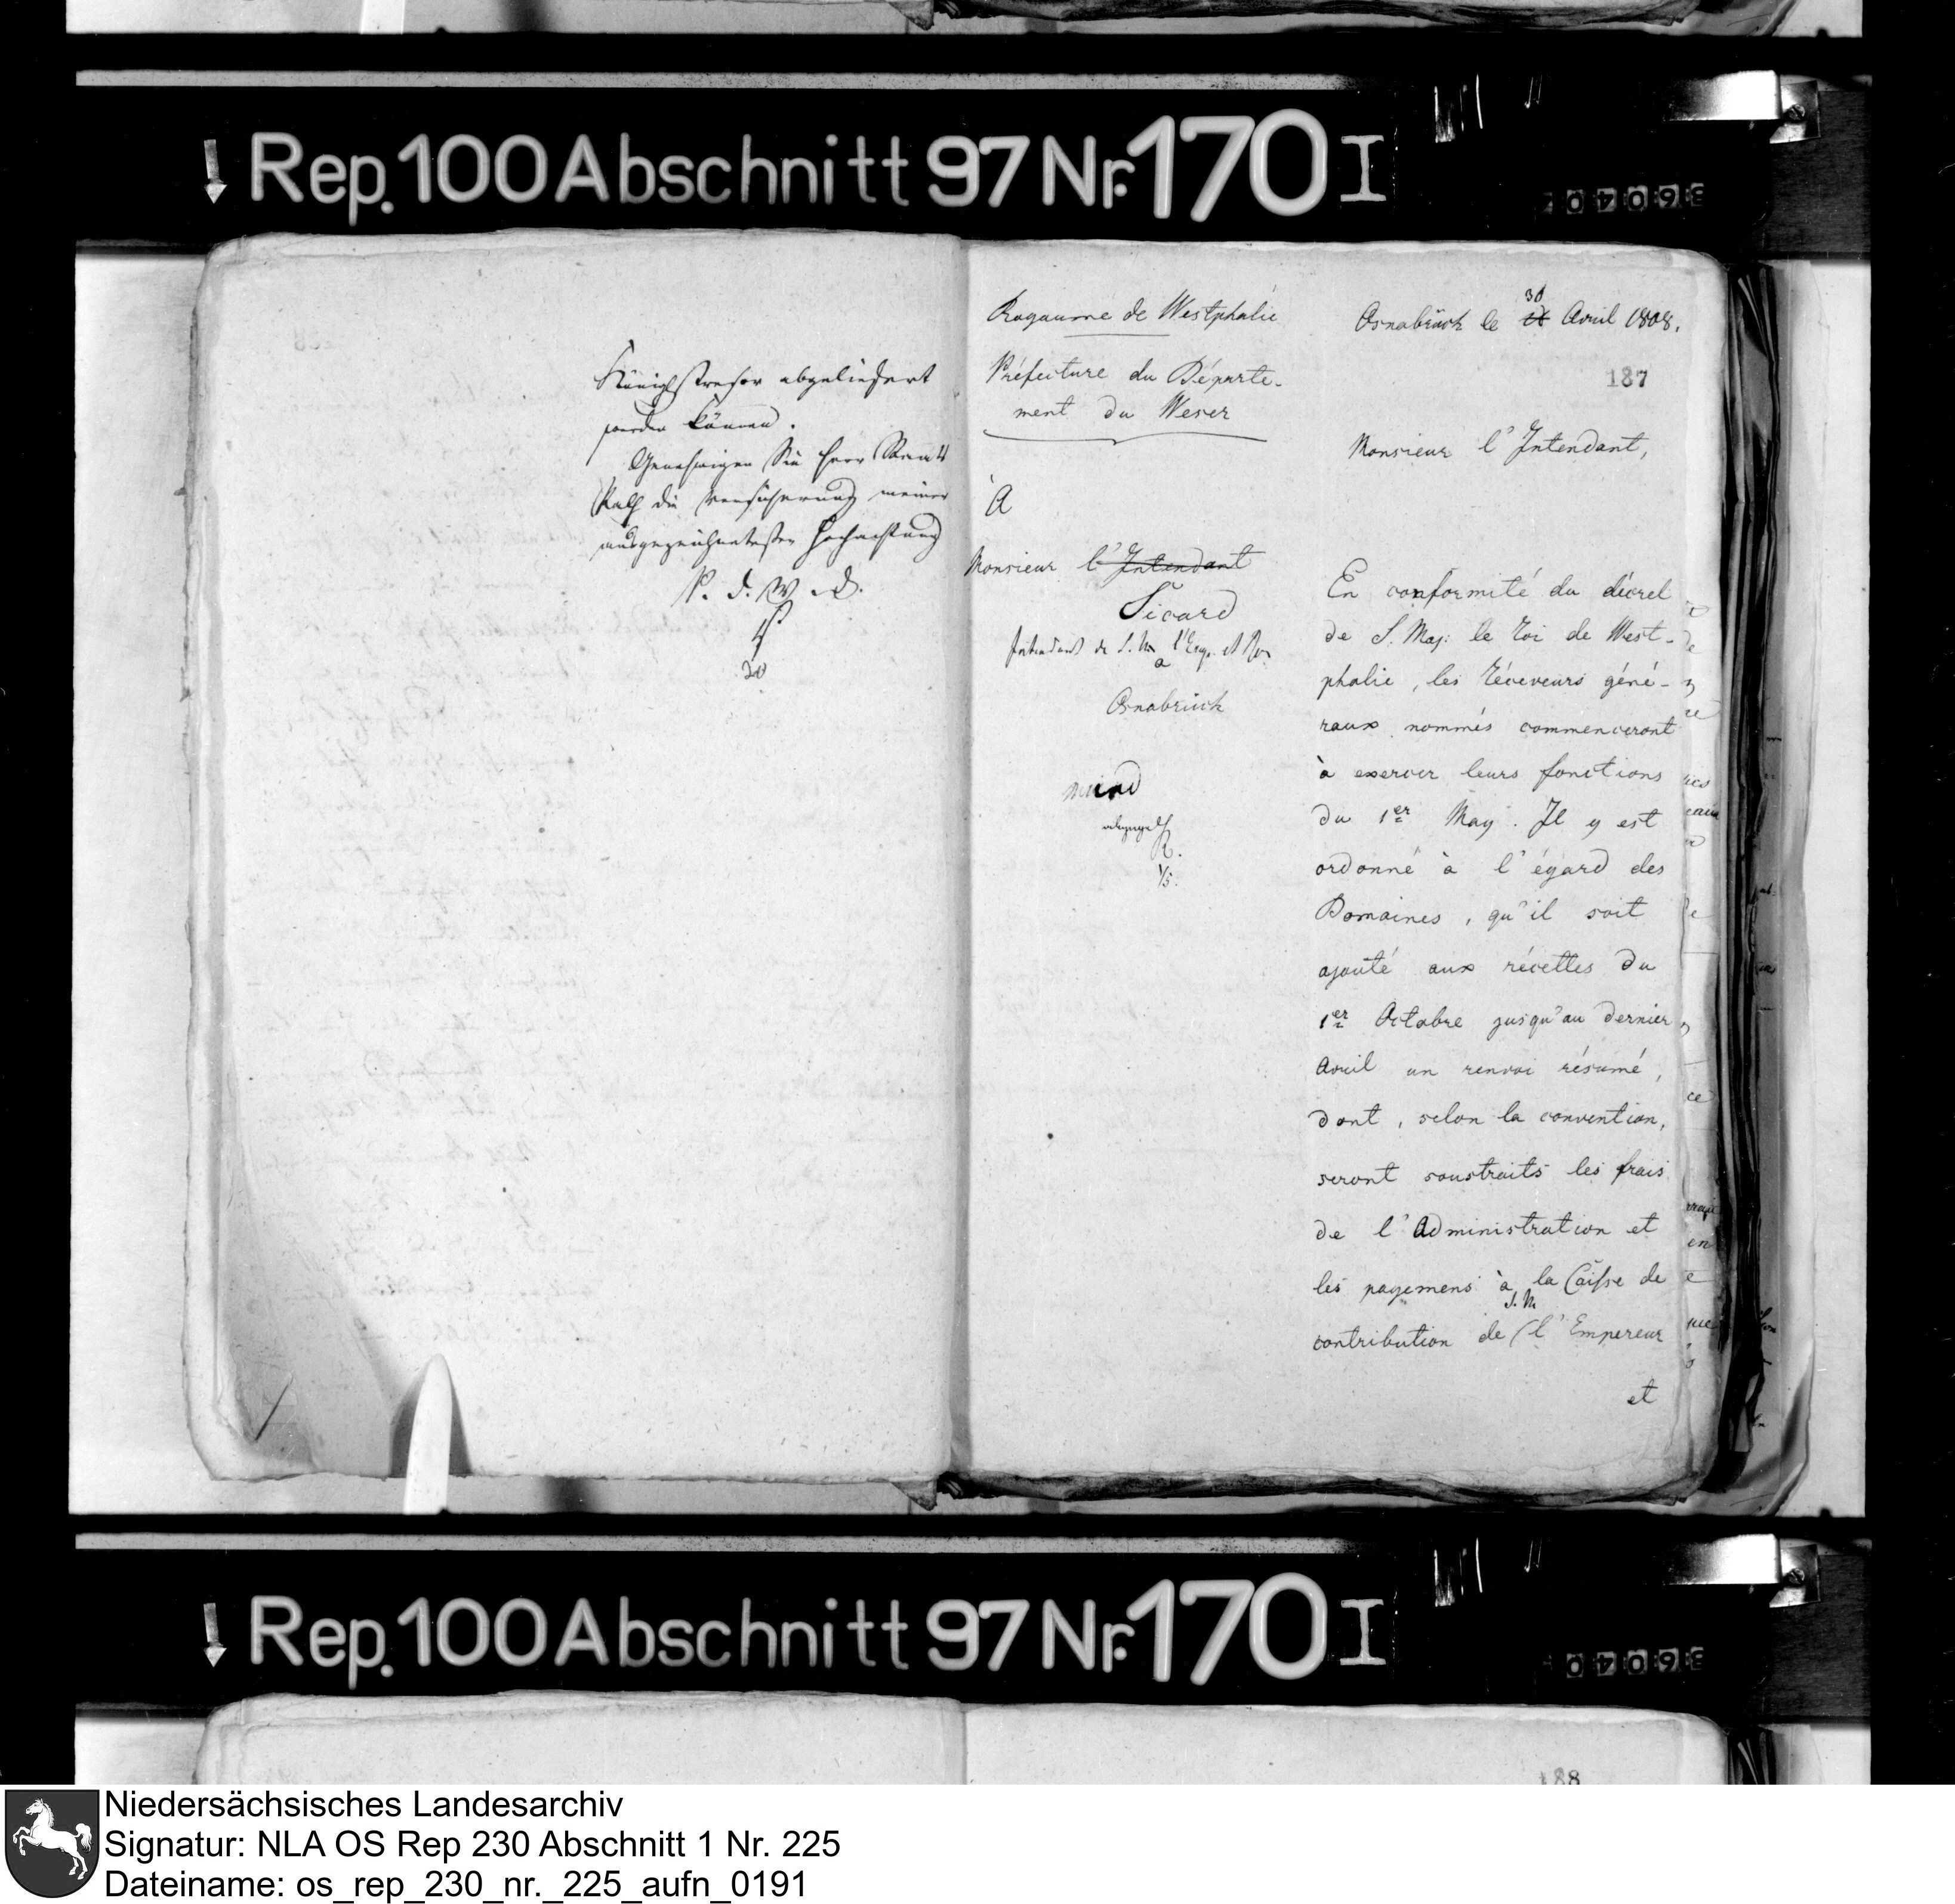 Rep. 100 Abschnitt 97 Nr. 170 I
36040
Königsstresor abgeliefert
werden können.
Genehmigen Sie Herr Staats
Rath die Versicherung meiner
ausgezeichnetesten Hochachtung
P. d. W. D.
30
Royaume de Westphalie
Préfecture du Départe-
ment du Weser
À
Monsieur l'Intendant
Sicard
Intendant de S. M. l'Emp. et Roi
a
Osnabrück
mund
abgeg.
1/5.
Osnabrück le 30 Avril 1808.
187
Monsieur l'Intendant,
En conformité du décret
de S. Maj: le roi de West-
phalie, les réceveurs géné-
raux nommés commenceront
à exercer leurs fonctions
du 1er May. Il y est
ordonné à l'égard des
Domaines, qu'il soit
ajouté aux récettes du
1er Octobre jusqu'au dernier
Avril un renvoi résumé,
dont, selon la convention,
seront soustraits les frais
de l'Administration et
les payemens à la Caisse de
contribution de S. M. l'Empereur
et
Rep. 100 Abschnitt 97 Nr. 170 I
188
Niedersächsisches Landesarchiv
Signatur: NLA OS Rep 230 Abschnitt 1 Nr. 225
Dateiname: os_rep_230_nr._225_aufn_0191